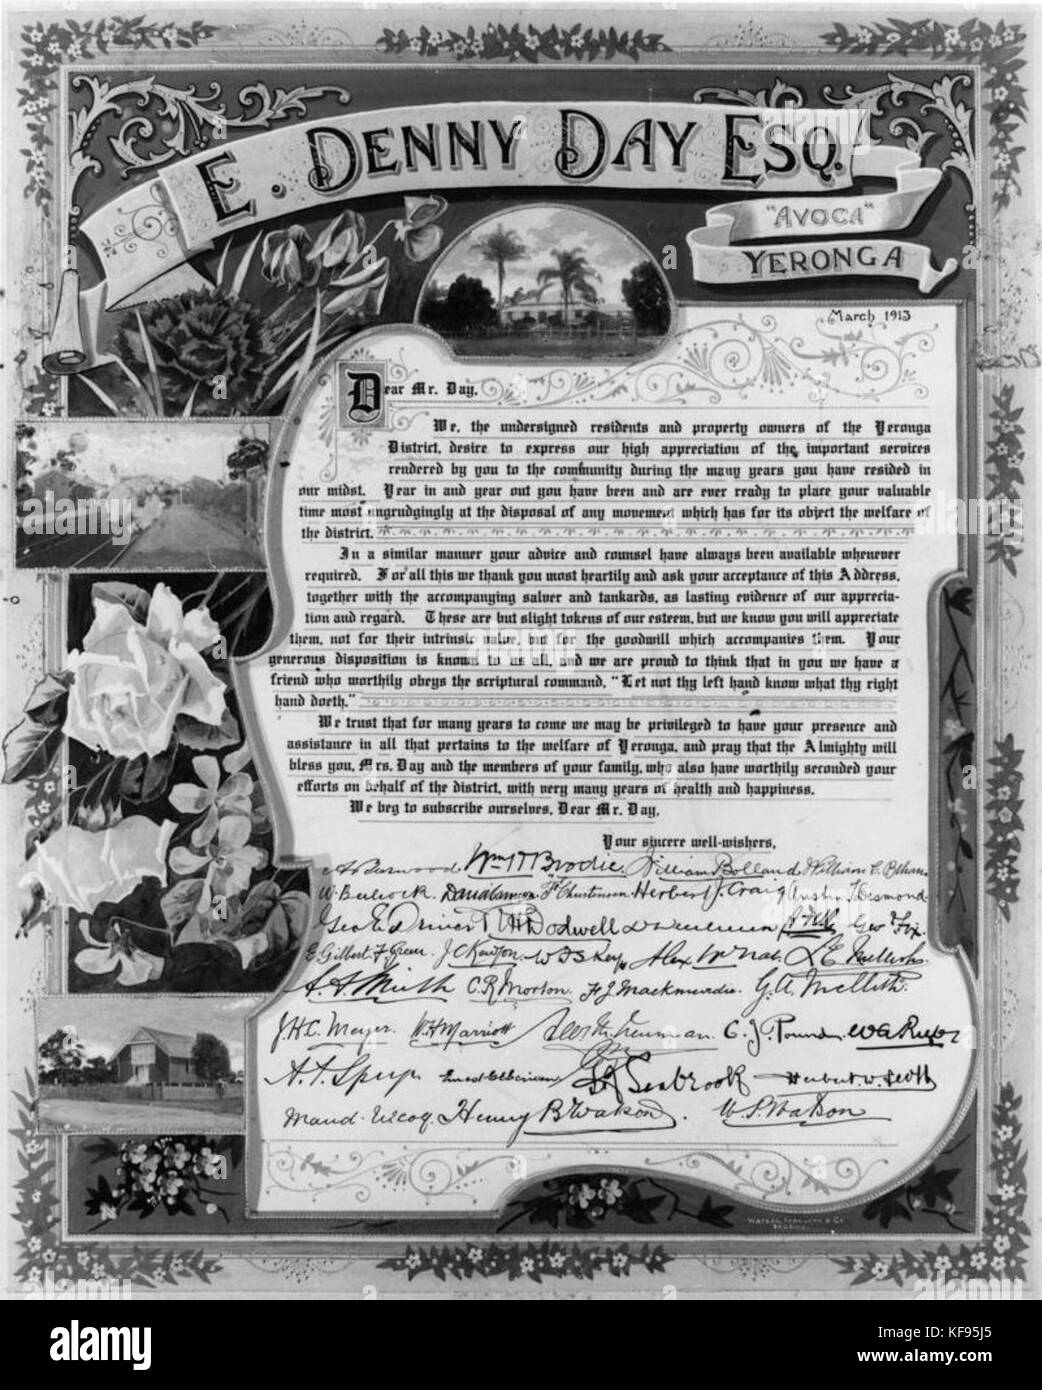 E. DENNY DAY ESQ.
"AVOCA"
YERONGA
March 1913
Dear Mr. Day,
We, the undersigned residents and property owners of the Yeronga
District, desire to express our high appreciation of the important services
rendered by you to the community during the many years you have resided in
our midst. Year in and year out you have been and are ever ready to place your valuable
time most ungrudgingly at the disposal of any movement which has for its object the welfare of
the district.
In a similar manner your advice and counsel have always been available whenever
required. For all this we thank you most heartily and ask your acceptance of this Address,
together with the accompanying salver and tankards, as lasting evidence of our apprecia-
tion and regard. These are but slight tokens of our esteem, but we know you will appreciate
them, not for their intrinsic value, but for the goodwill which accompanies them. Your
generous disposition is known to us all, and we are proud to think that in you we have a
friend who worthily obeys the scriptural command, "Let not thy left hand know what thy right
hand doeth."
We trust that for many years to come we may be privileged to have your presence and
assistance in all that pertains to the welfare of Yeronga, and pray that the Almighty will
bless you, Mrs. Day and the members of your family, who also have worthily seconded your
efforts on behalf of the district, with very many years of health and happiness.
We beg to subscribe ourselves, Dear Mr. Day,
Your sincere well-wishers,
Wm. Brodie. William Bolland William C.
W. Bulcock. David Cameron Christensen Herbert J. Craig Desmond
Geo E. Driver Dodwell Geo Fox.
E. Gilbert F. Green. W Key Alex
C. R. Morton. F J Mackmurdie. G. A.
J. H. C. Meyer. W. H. Marriott C. J. Pound.
A. T. Seabrook Herbert W. Scott
Maud Henry B Watson. W. P. Watson
WATSON, FERGUSON & CO.
BRISBANE.
alamy
a
alamy
Image ID: KF95J5
www.alamy.com